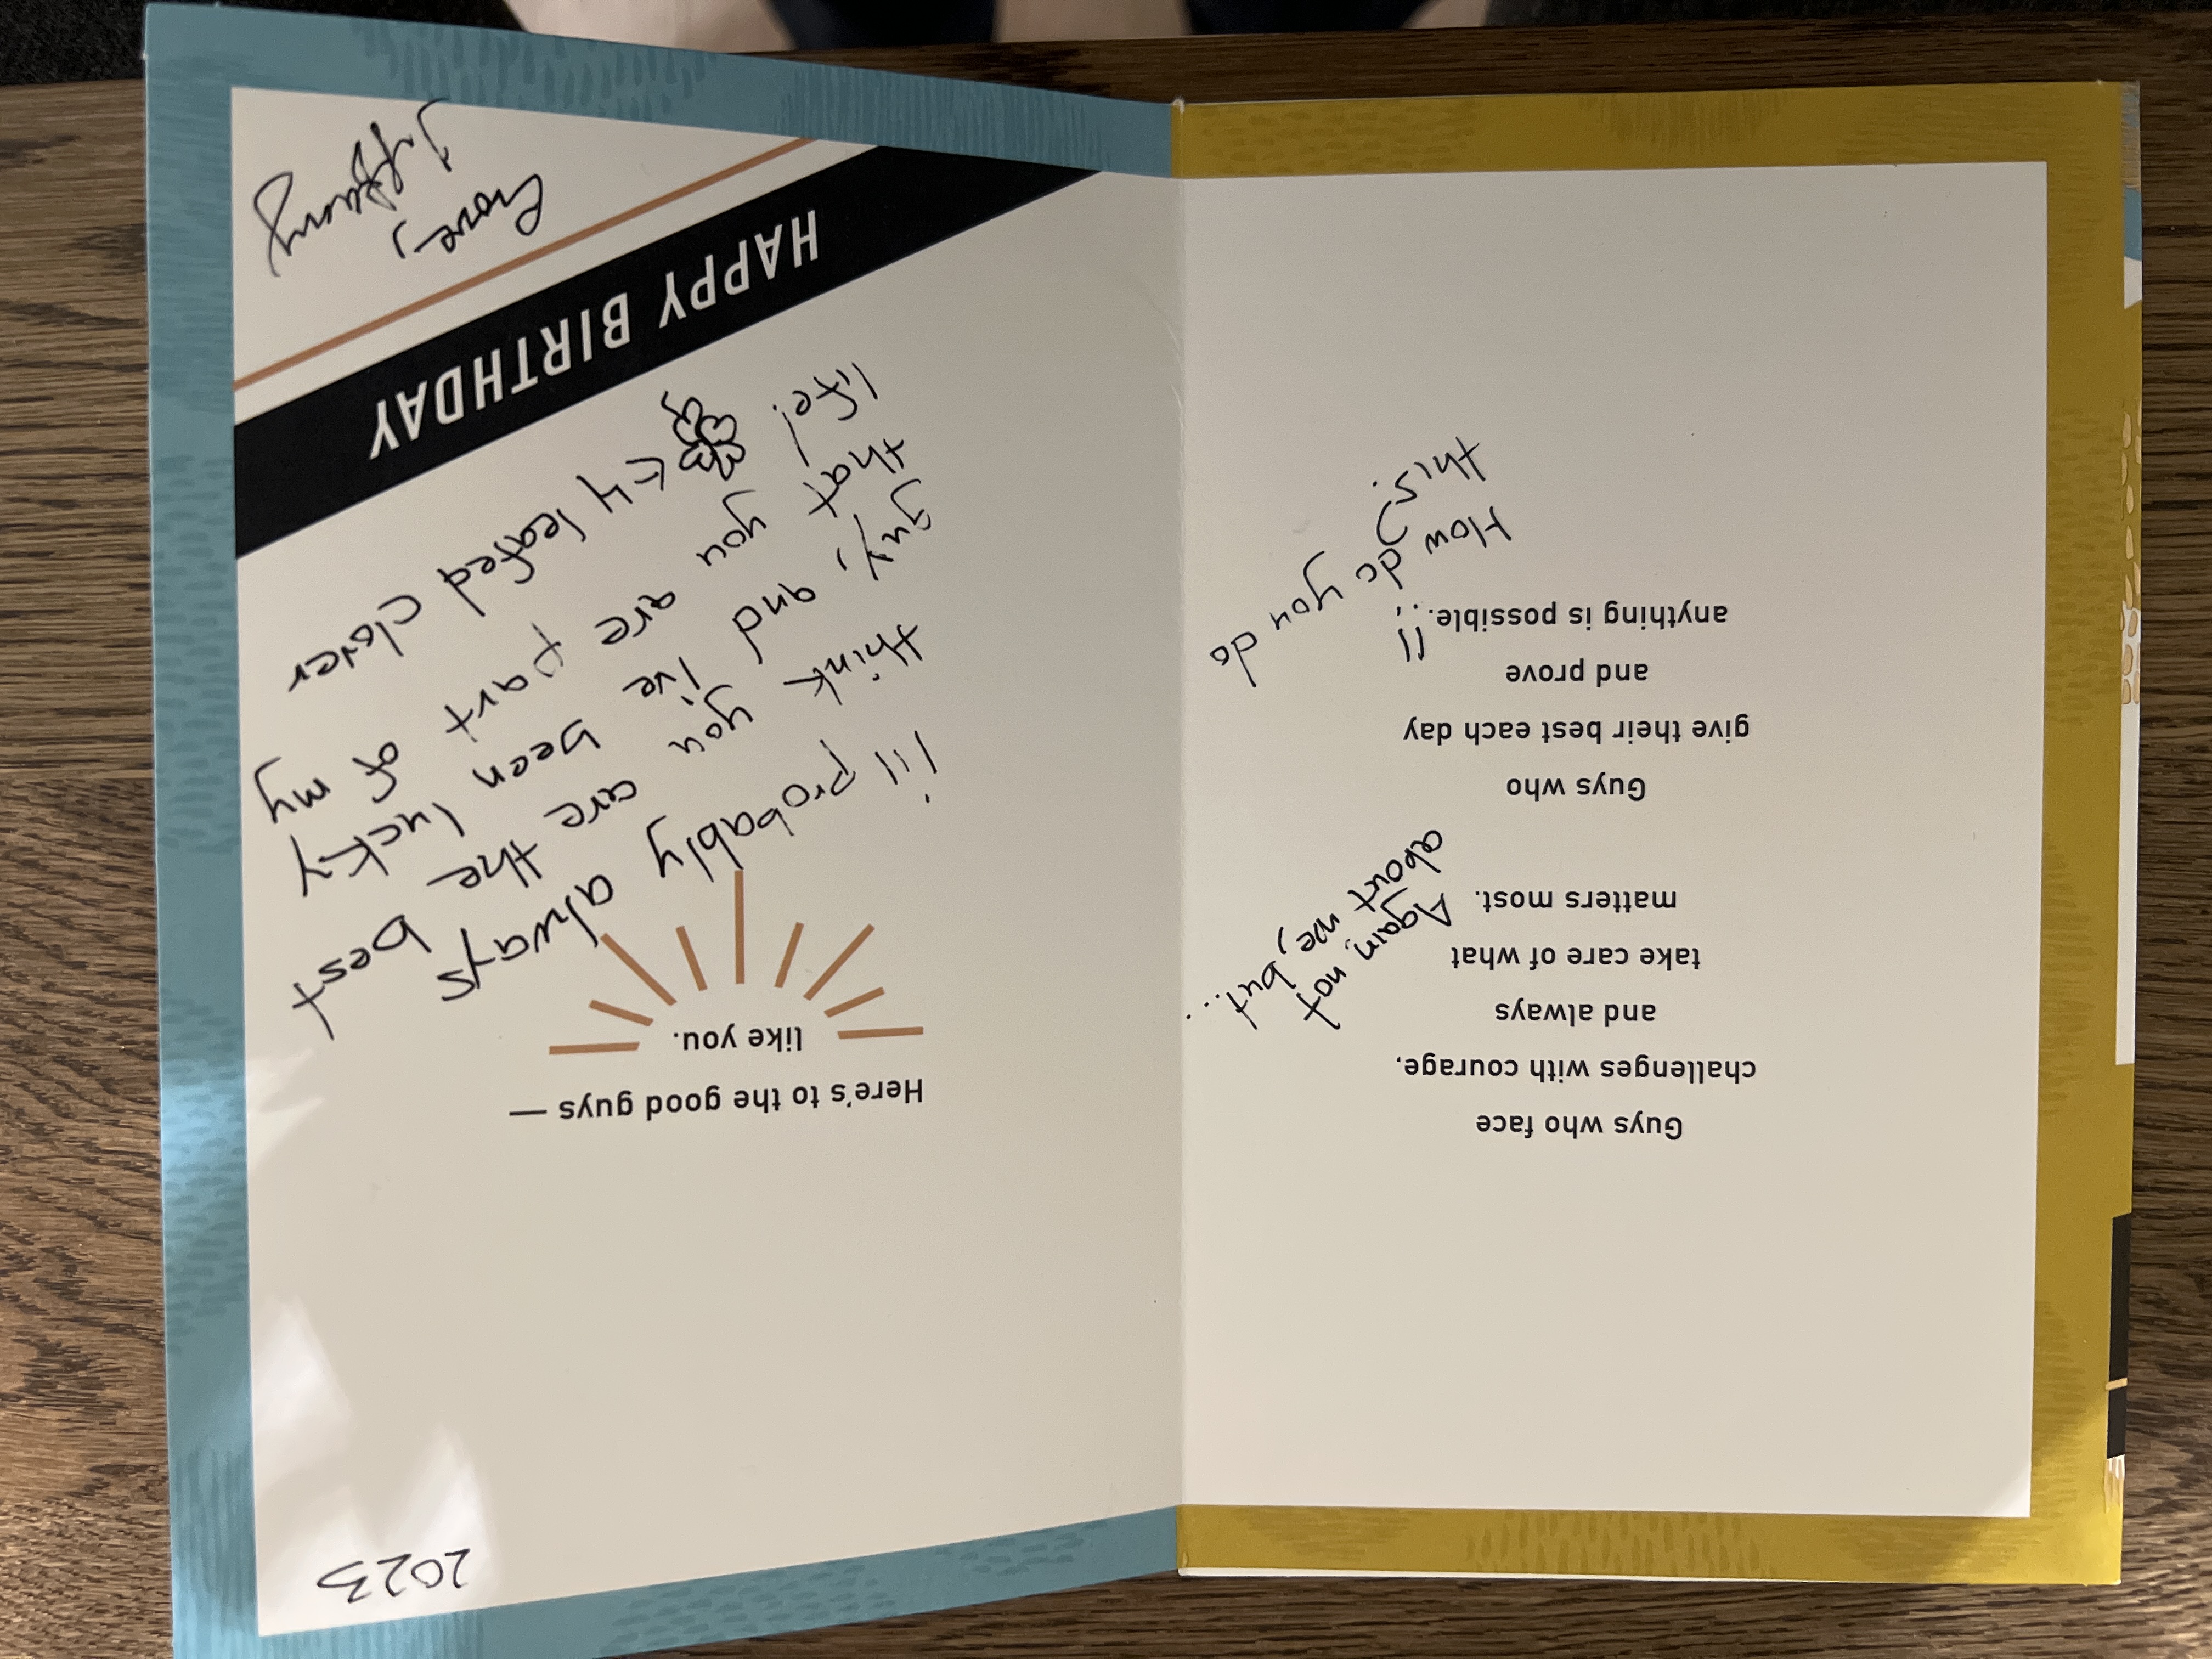 Guys who face
challenges with courage,
and always
take care of what
matters most.
Again, not
about me, but...
Guys who
give their best each day
and prove
anything is possible.
!!
How do you do
this?
2023
Here's to the good guys —
like you.
i'll probably always
think you are the best
guy, and I've been lucky
that you are part of my
life!
← 4 leafed clover
HAPPY BIRTHDAY
Love,
Tiffany